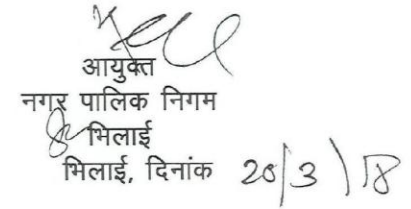 आयुक्त
नगर पालिक निगम
भिलाई
भिलाई, दिनांक 20/3/18